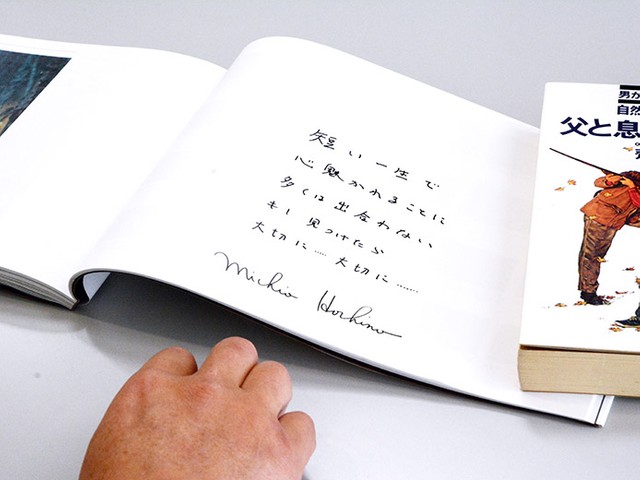 短い一生で
心魅かれることに
多くは出合わない
もし見つけたら
大切に……大切に………
Michio Hoshino
男が
自然
父と息